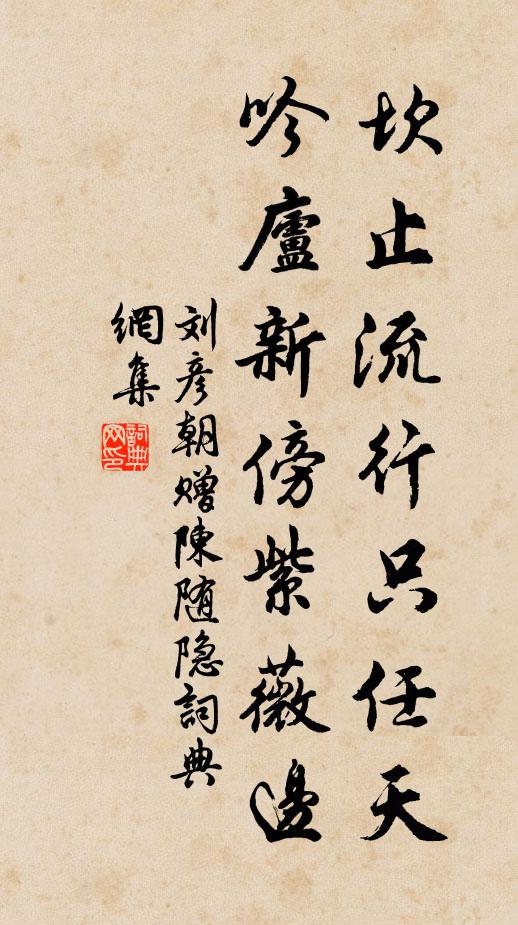 坎止流行只任天
吟廬新傍紫薇邊
刘彦朝赠陳随隐詞典
網集
詞典
网印